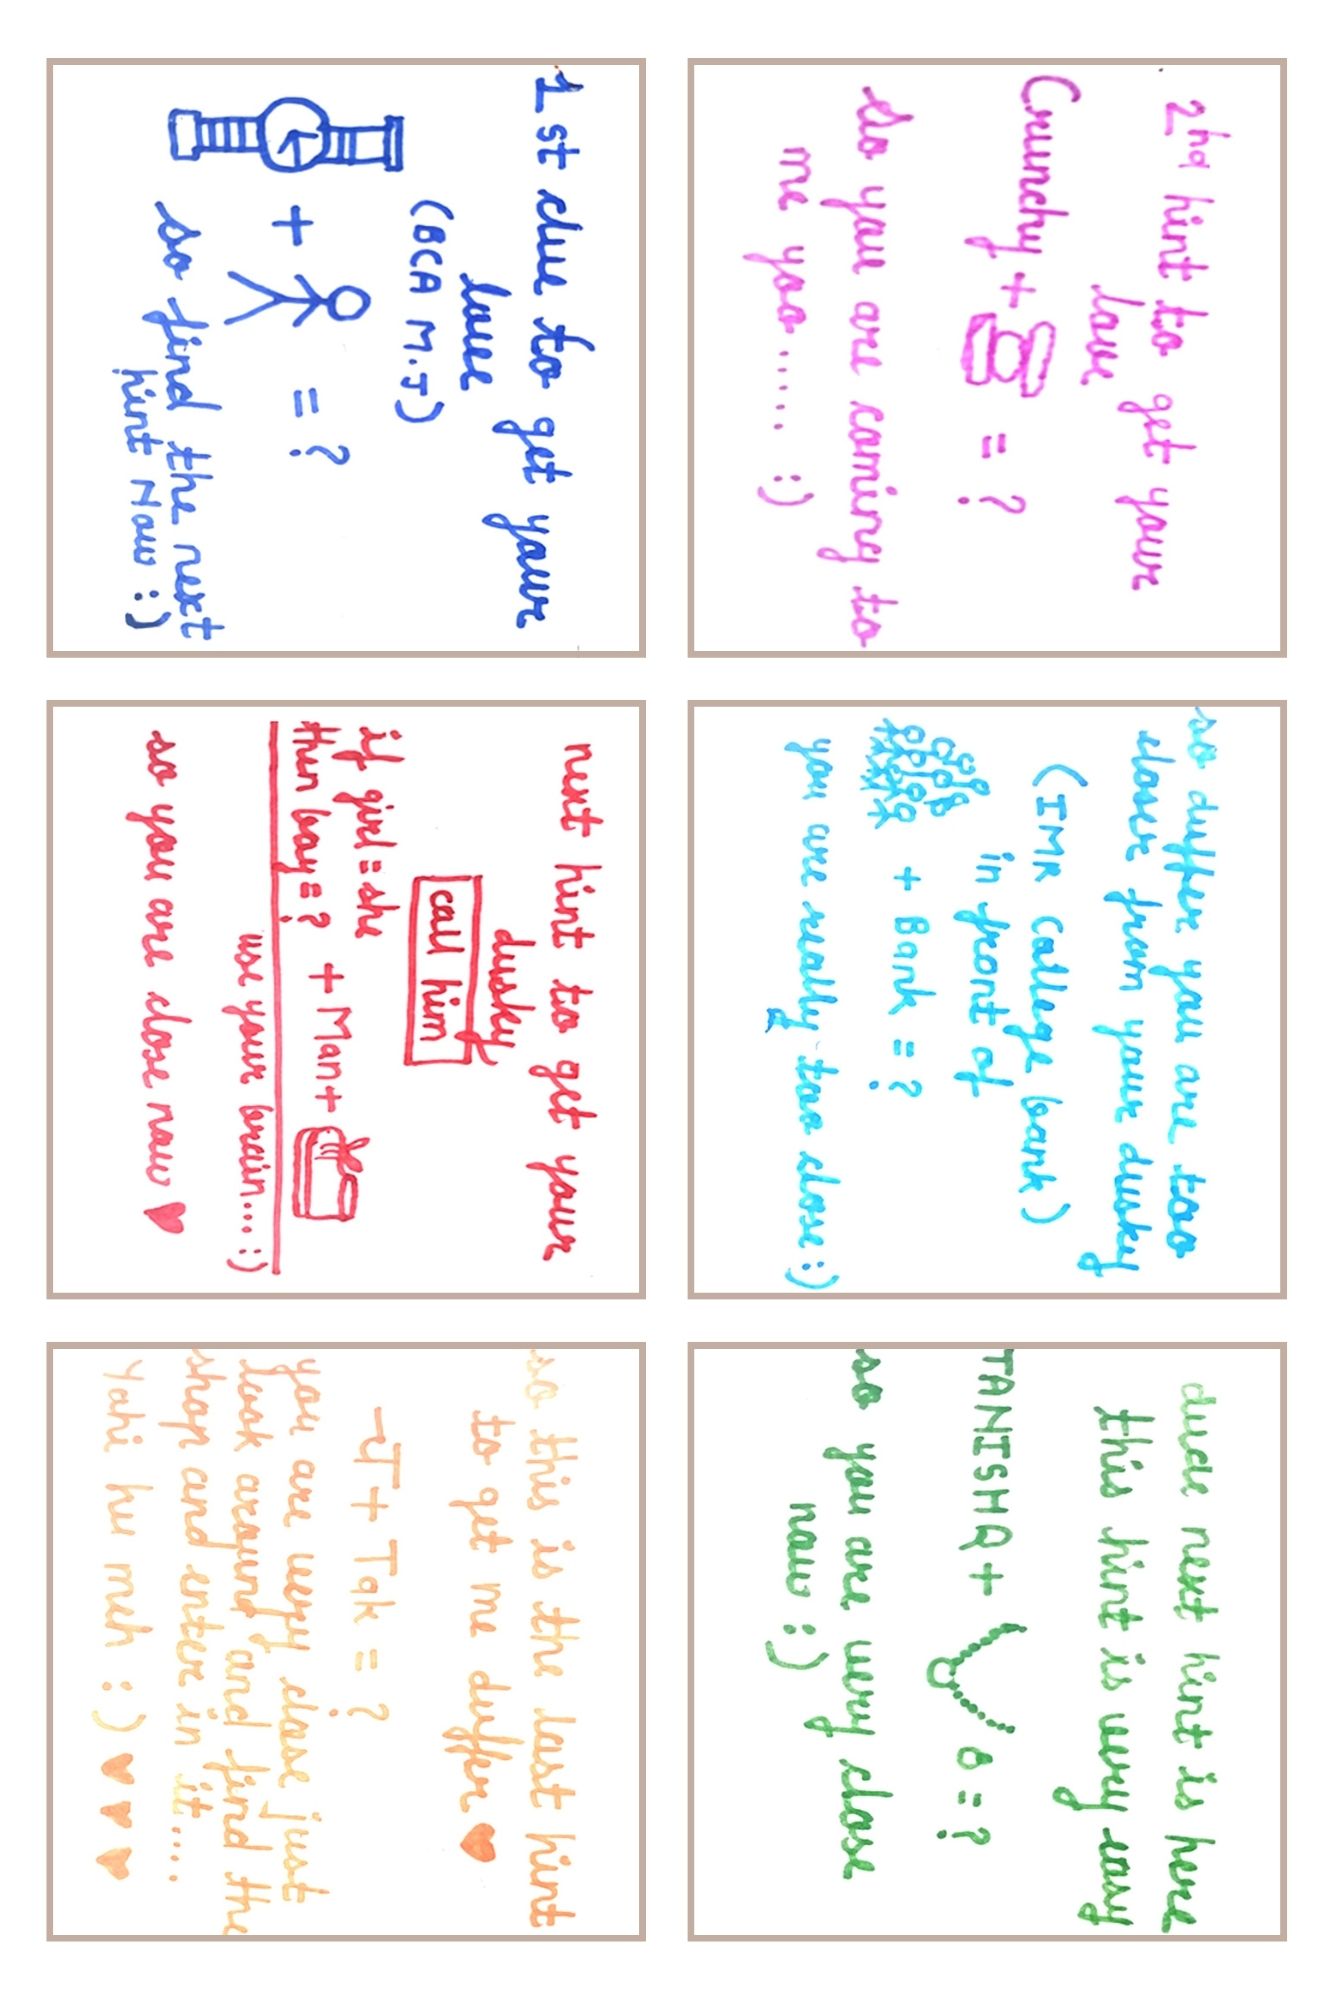 2nd hint to get your
love
Crunchy + = ?
So you are coming to
me yoo ..... :)
so duffer you are too
closer from your dusky
(IMR College bank)
in front of
+ Bank = ?
you are really too close :)
dude next hint is here
this hint is very easy
TANISHQ + = ?
so you are very close
now :)
1st clue to get your
love
(BCA M.J)
+ = ?
so find the next
hint Now :)
next hint to get your
dusky
call him
if girl = she
then boy = ? + Man +
use your brain... :)
so you are close now ♥
so this is the last hint
to get me duffer ♥
+ Tak = ?
you are very close just
look around and find the
shop and enter in it....
Yahi hu meh :) ♥ ♥ ♥